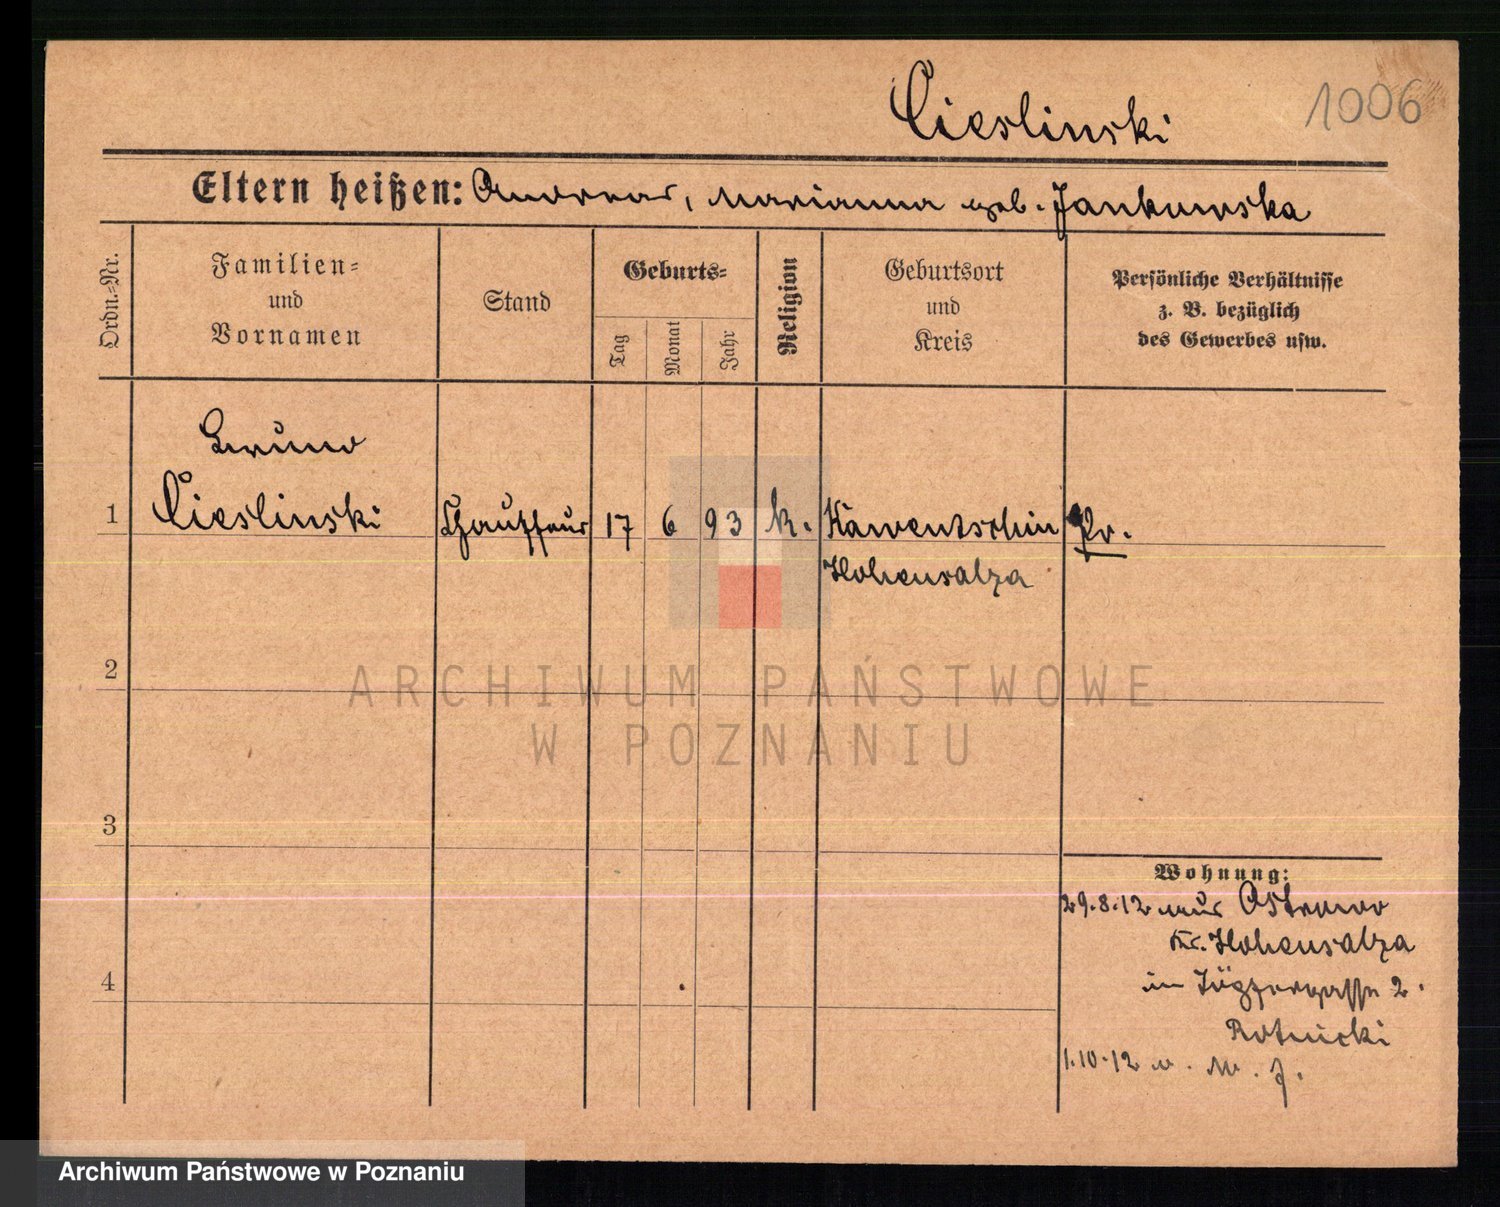 Cieslinski
1006
Eltern heißen: Andreas, Marianna geb. Jankowska
Ordn.-Nr.
Familien-
und
Vornamen
Stand
Geburts-
Tag
Monat
Jahr
Religion
Geburtsort
und
Kreis
Persönliche Verhältnisse
z. B. bezüglich
des Gewerbes usw.
Bruno
1 Cieslinski Chauffeur 17 6 93 k. Kawentschin Pr.
Hohensalza
2
ARCHIWUM PAŃSTWOWE
W POZNANIU
3
Wohnung:
29.8.12 aus Ostrowo
Kr. Hohensalza
in 2.
Rotnicki
4
1.10.12 n.
Archiwum Państwowe w Poznaniu